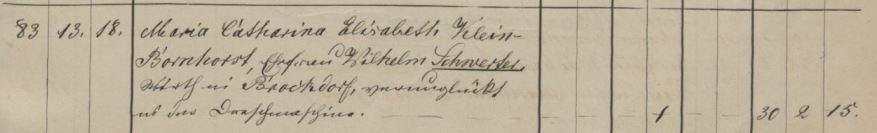 83 13. 18. Maria Catharina Elisabeth Klein-
Bornhorst, Ehefrau Wilhelm Schwerter,
Wirth in Brockdorf, verunglückt
in der Dreschmaschine. — — — 1 — — 30 2 15.